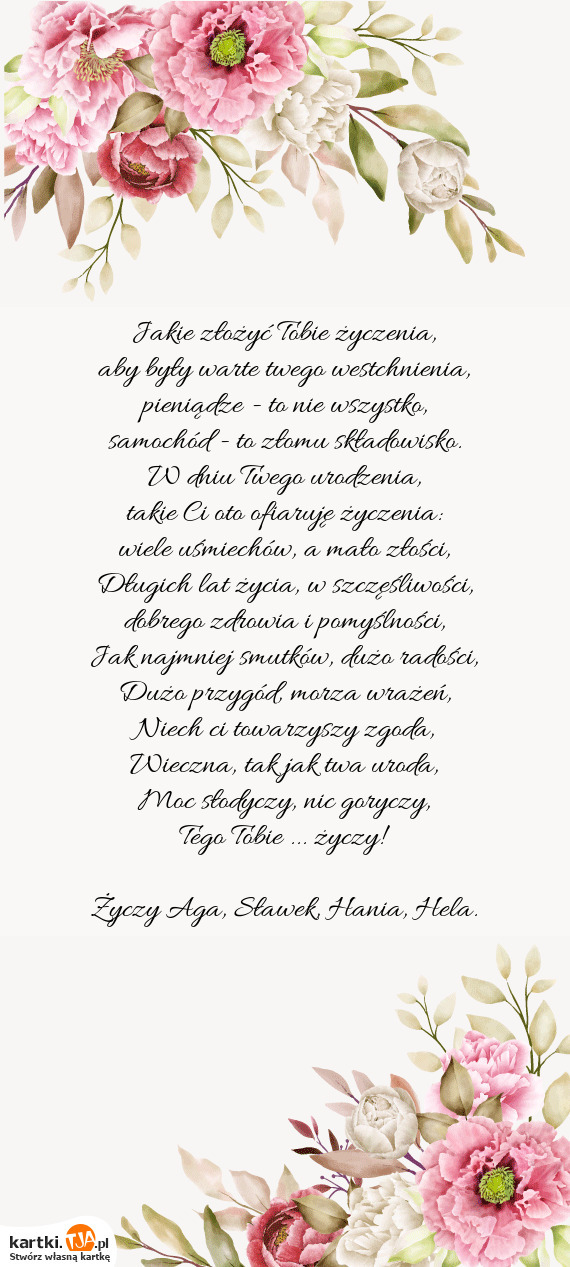 Jakie złożyć Tobie życzenia,
aby były warte twego westchnienia,
pieniądze - to nie wszystko,
samochód - to złomu składowisko.
W dniu Twego urodzenia,
takie Ci oto ofiaruję życzenia:
wiele uśmiechów, a mało złości,
Długich lat życia, w szczęśliwości,
dobrego zdrowia i pomyślności,
Jak najmniej smutków, dużo radości,
Dużo przygód, morza wrażeń,
Niech ci towarzyszy zgoda,
Wieczna, tak jak twa uroda,
Moc słodyczy, nic goryczy,
Tego Tobie ... życzy!
Życzy Aga, Sławek, Hania, Hela.
kartki.TJA.pl
Stwórz własną kartkę